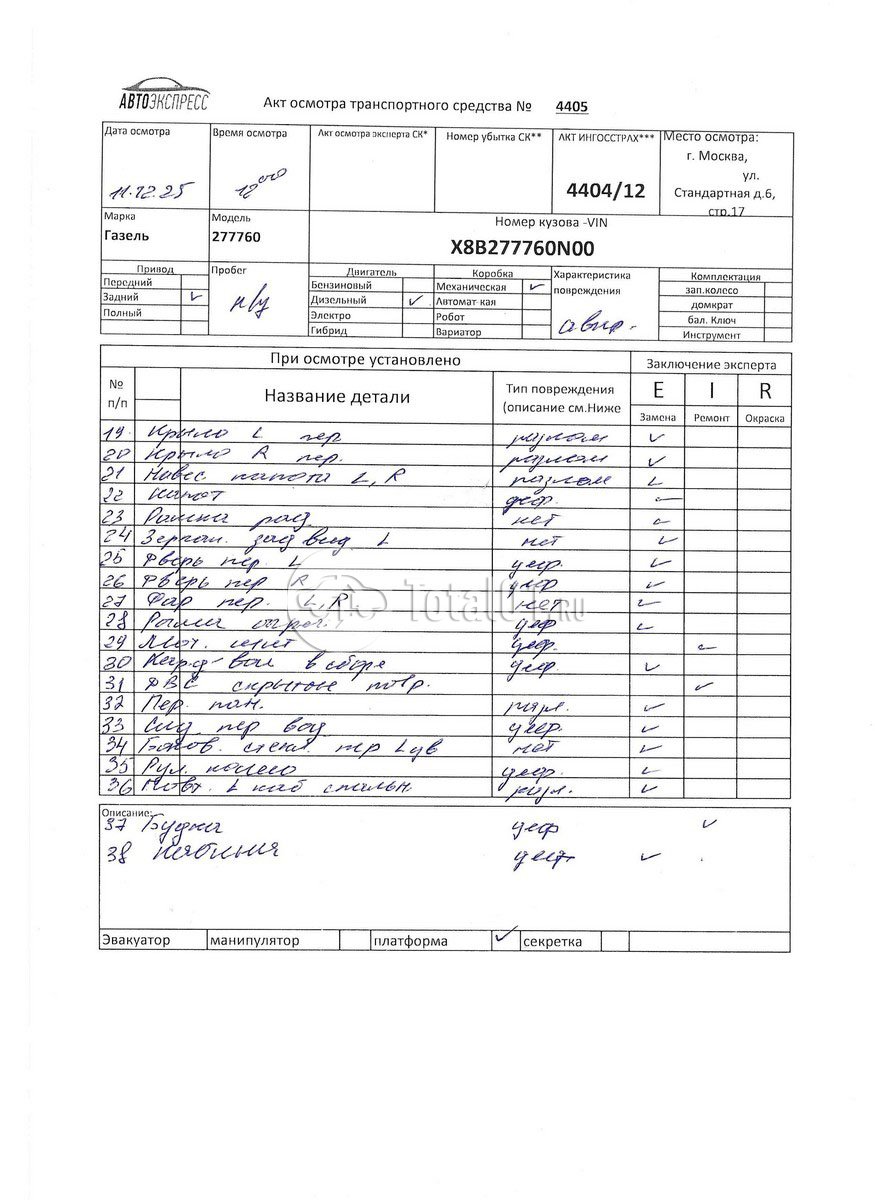 АВТОЭКСПРЕСС
Акт осмотра транспортного средства № 4405
Дата осмотра Время осмотра Акт осмотра эксперта СК* Номер убытка СК** АКТ ИНГОССТРАХ*** Место осмотра:
г. Москва,
ул.
11.12.25 12 00 4404/12 Стандартная д.6,
стр.17
Марка Модель Номер кузова -VIN
Газель 277760 X8B277760N00
Привод Пробег Двигатель Коробка Характеристика Комплектация
Передний Бензиновый Механическая ✓ повреждения зап.колесо
Задний ✓ н/у Дизельный ✓ Автомат-кая домкрат
Полный Электро Робот бал. Ключ
Гибрид Вариатор Инструмент
При осмотре установлено Заключение эксперта
№ п/п Название детали Тип повреждения (описание см.Ниже E I R
Замена Ремонт Окраска
19 Крыло L пер разлом ✓
20 Крыло R пер. разлом ✓
21 Навес капота L, R разлом ✓
22 Капот деф. ✓
23 Рамка рад нет ✓
24 Зеркал. зад вид L нет ✓
25 Дверь пер. L деф. ✓
26 Дверь пер R деф ✓
27 Фар пер. L, R нет ✓
28 Рамы деф ✓
29 Мот. щит деф. ✓
30 Кард-вал в сборе деф. ✓
31 ДВС скрытые повр. ✓
32 Пер. пан. разл. ✓
33 Сид пер вод деф. ✓
34 Боков. стекл. пер L дв нет ✓
35 Рул. колесо деф. ✓
36 Повт. L каб спальн. разл. ✓
Описание:
37 Будка деф ✓
38 Кабина деф. ✓
Эвакуатор манипулятор платформа ✓ секретка
TotalCT.RU